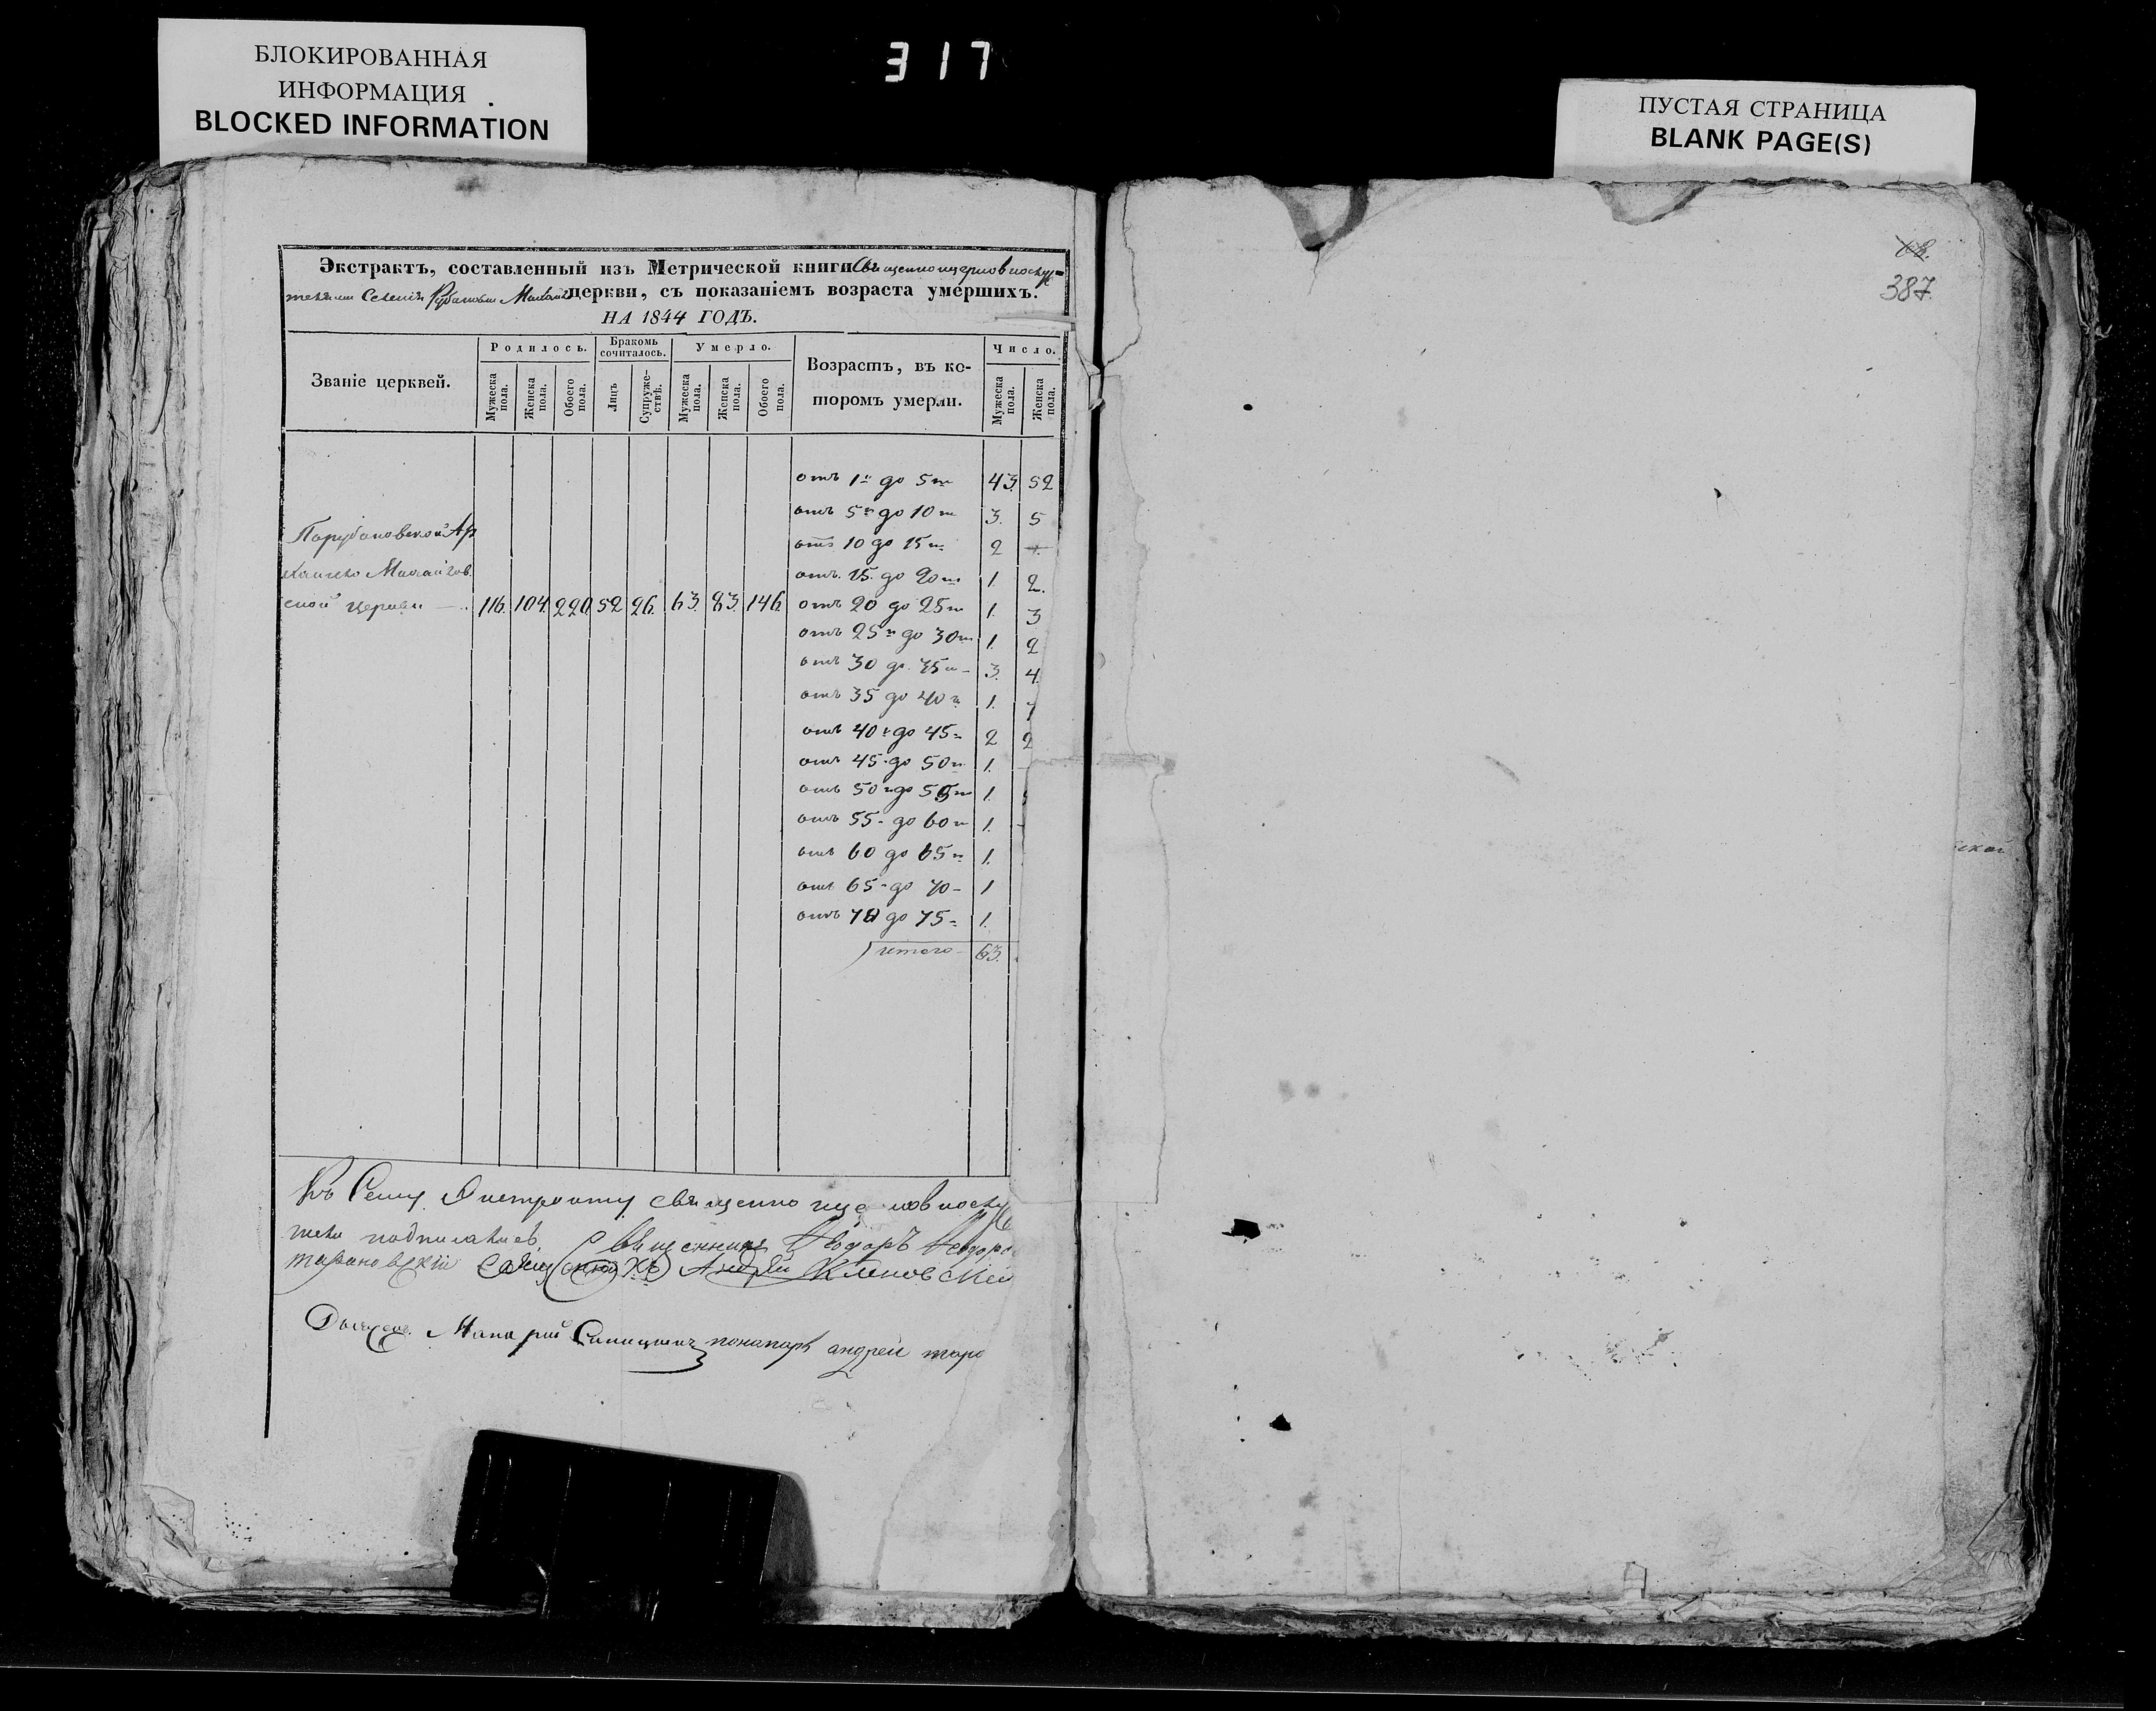 БЛОКИРОВАННАЯ
ИНФОРМАЦИЯ
BLOCKED INFORMATION
317
ПУСТАЯ СТРАНИЦА
BLANK PAGE(S)
387.
Экстрактъ, составленный изъ Метрической книги Священноцерковнослу=
жителями Селенія церкви, съ показаніемъ возраста умершихъ.
НА 1844 ГОДЪ.
Званіе церквей.
Родилось.
Бракомъ сочиталось.
Умерло.
Возрастъ, въ ко-
торомъ умерли.
Число.
Мужеска пола.
Женска пола.
Обоего пола.
Лицъ
Супруже-ствъ.
Мужеска пола.
Женска пола.
Обоего пола.
Мужеска пола.
Женска пола.
отъ 1го до 5ти 43. 52
отъ 5ти до 10ти 3. 5
отъ 10 до 15ти 2
отъ 15 до 20ти 1. 2.
Парубановской Ар
хангело Михайлов.
ской церкви — 116. 104. 220. 52 26. 63. 83. 146.
отъ 20 до 25ти 1. 3
отъ 25ти до 30ти 1. 2
отъ 30 до 35ти 3. 4.
отъ 35 до 40ти 1.
отъ 40 до 45 2 2
отъ 45 до 50ти 1.
отъ 50 до 55ти 1.
отъ 55 до 60ти 1.
отъ 60 до 65ти 1.
отъ 65 до 70 1
отъ 70 до 75 1.
итого 63.
Къ Сему Экстракту священно церковнослу
жители подписались Священникъ Ѳеодоръ Ѳеодоро
Тарановскій Священникъ Андрей Климовскій
Макарій пономарь андрей таро
ской